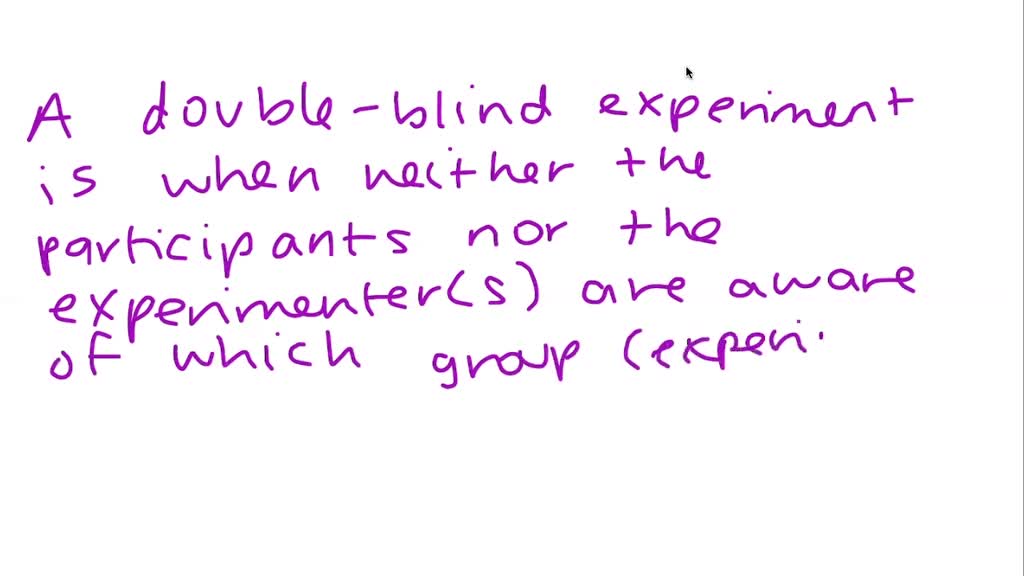 A double-blind experiment
is when neither the
participants nor the
experimenter(s) are aware
of which group (experi